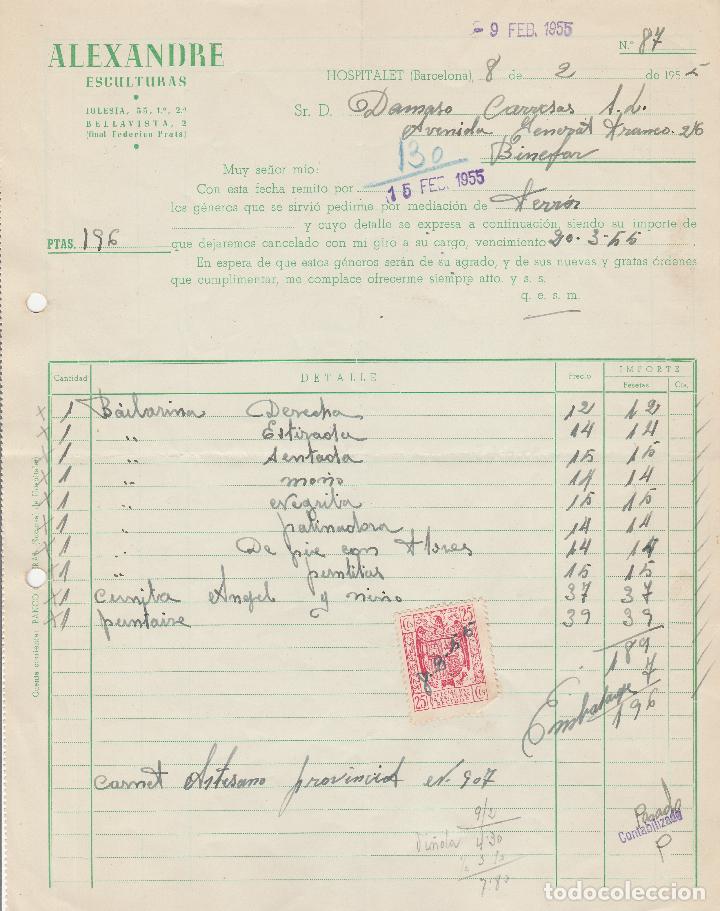 - 9 FEB. 1955
ALEXANDRE
ESCULTURAS
IGLESIA, 55, 1.º, 2.ª
BELLAVISTA, 2
(final Federico Prats)
N.º 87
HOSPITALET (Barcelona), 8 de 2 de 1955
Sr. D. Damaso Carreras S.L.
Avenida General Franco. 26
Binefar
130
15 FEB. 1955
Muy señor mío:
Con esta fecha remito por
los géneros que se sirvió pedirme por mediación de
y cuyo detalle se expresa a continuación, siendo su importe de
PTAS. 196
que dejaremos cancelado con mi giro a su cargo, vencimiento 20-3-55.
En espera de que estos géneros serán de su agrado, y de sus nuevas y gratas órdenes
que cumplimentar, me complace ofrecerme siempre atto. y s. s.
q. e. s. m.
Cantidad DETALLE Precio IMPORTE
Pesetas Cts.
x 1 Bailarina Derecha 12 12
x 1 " Estirada 14 14
x 1 " Sentada 15 15
x 1 " moño 14 14
x 1 " Negrita 15 15
x 1 " patinadora 14 14
x 1 " De pie con flores 14 14
x 1 " puntitas 15 15
x 1 Cunita Angel y niño 37 37
x 1 puntaire 39 39
189
Embalage 7
196
25 Cts. 25
25 Cts.
Carnet Artesano provincial Nº 907
9/2
Viñola 4'30
3'
7'80
Pagado
Contabilizado
P
todocoleccion.net